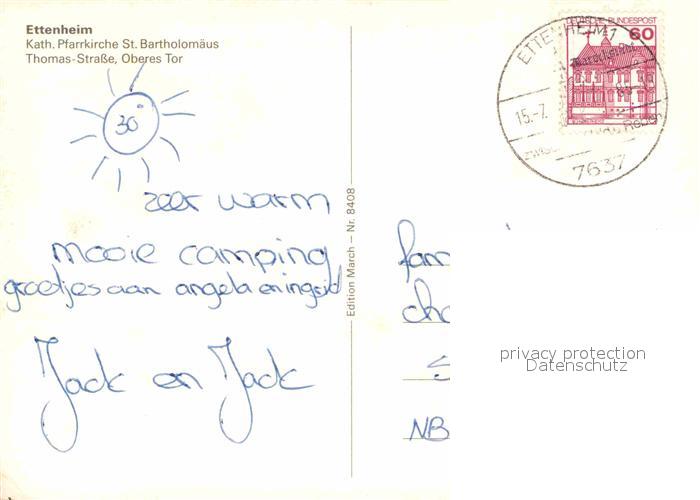 Ettenheim
Kath. Pfarrkirche St. Bartholomäus
Thomas-Straße, Oberes Tor
30°
zeer warm
mooie camping
groetjes aan angela en ingrid
Jack en Jack
Edition March — Nr. 8408
DEUTSCHE BUNDESPOST
60
ETTENHEIM 1
15.-7.
Reben
7637
fam
cha
S
NB
privacy protection
Datenschutz